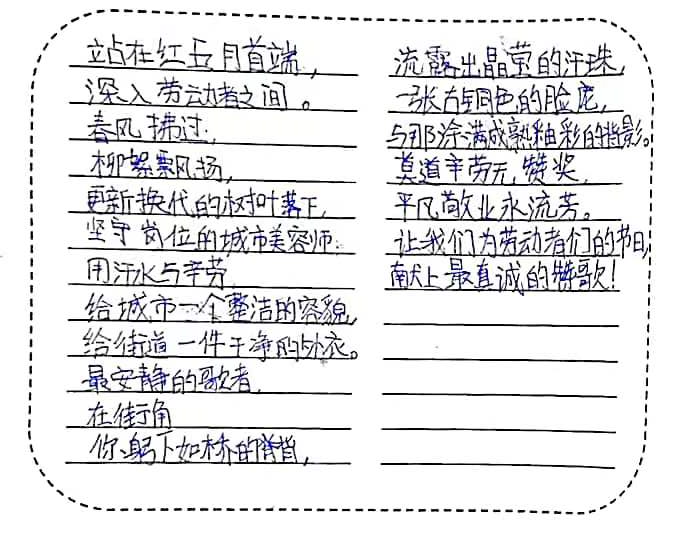 站在红五月首端，
深入劳动者之间。
春风拂过，
柳絮飘扬，
更新换代的树叶落下，
坚守岗位的城市美容师：
用汗水与辛劳
给城市一个整洁的容貌，
给街道一件干净的外衣。
最安静的歌者，
在街角
你躬下如桥的脊背，
流露出晶莹的汗珠，
一张古铜色的脸庞，
与那涂满成熟釉彩的背影。
莫道辛劳无赞奖，
平凡敬业永流芳。
让我们为劳动者们的节日，
献上最真诚的赞歌！